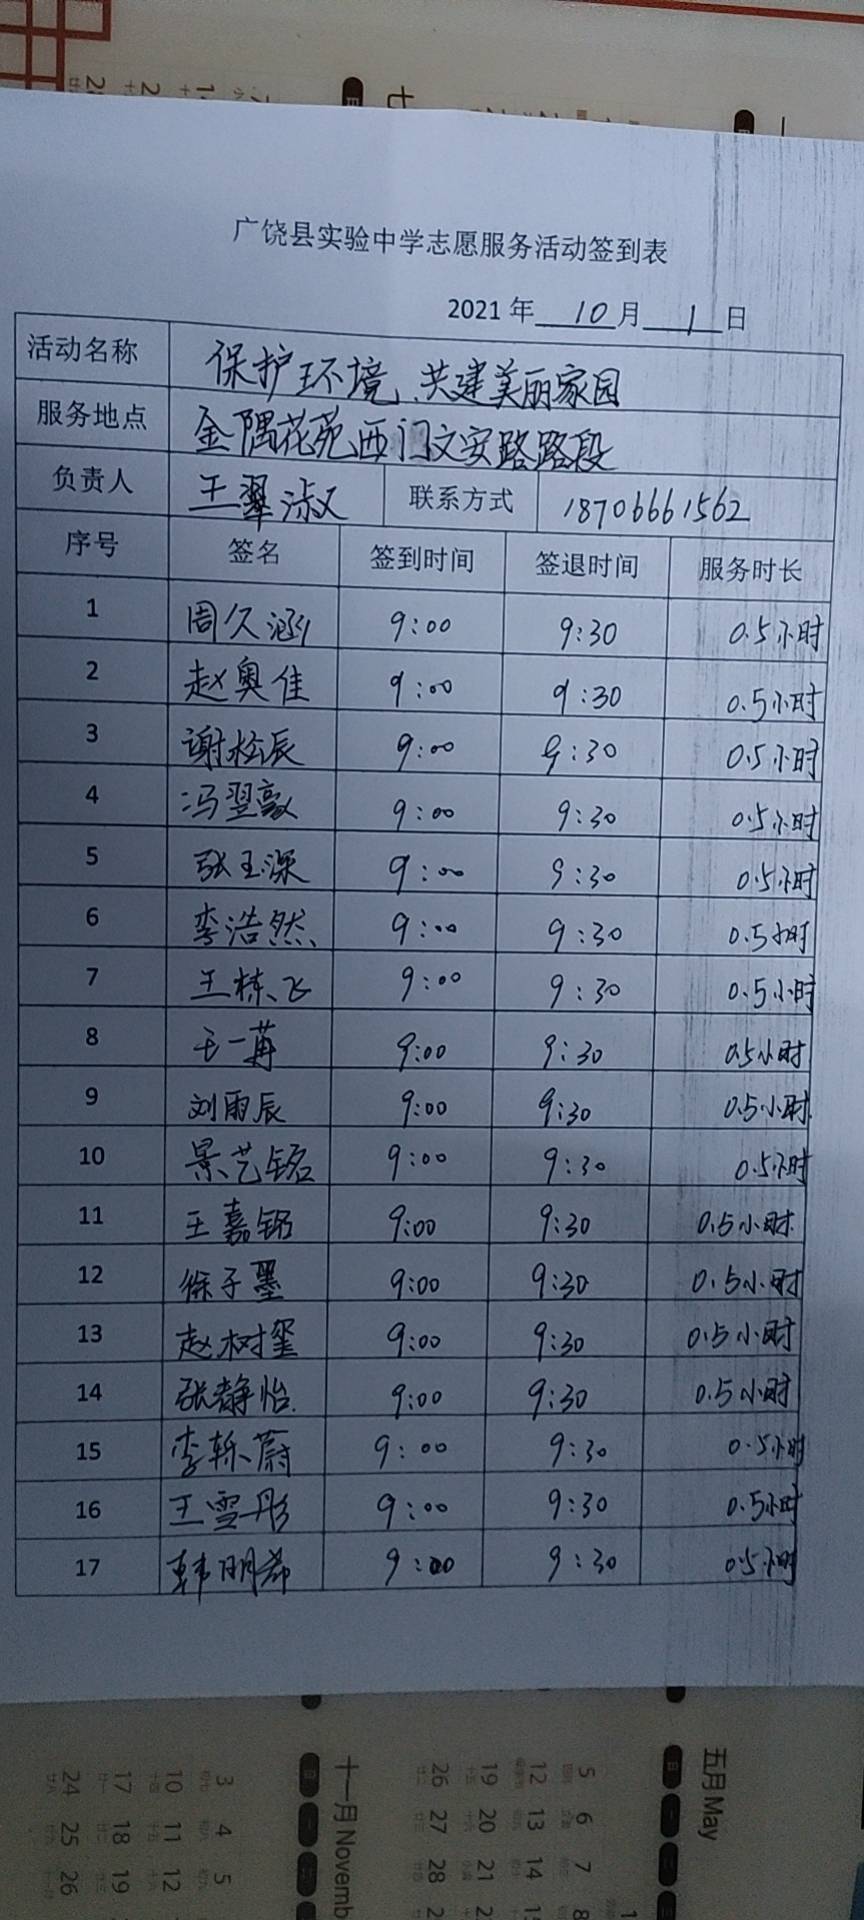 七
广饶县实验中学志愿服务活动签到表
2021 年 10 月 1 日
活动名称 保护环境、共建美丽家园
服务地点 金隅花苑西门文安路路段
负责人 王翠淑 联系方式 18706661562
序号 签名 签到时间 签退时间 服务时长
1 周久涵 9:00 9:30 0.5小时
2 赵奥佳 9:00 9:30 0.5小时
3 谢松辰 9:00 9:30 0.5小时
4 冯翌敦 9:00 9:30 0.5小时
5 张玉深 9:00 9:30 0.5小时
6 李浩然 9:00 9:30 0.5小时
7 王栋飞 9:00 9:30 0.5小时
8 王一苒 9:00 9:30 0.5小时
9 刘雨辰 9:00 9:30 0.5小时
10 景艺铭 9:00 9:30 0.5小时
11 王嘉铭 9:00 9:30 0.5小时
12 徐子墨 9:00 9:30 0.5小时
13 赵树玺 9:00 9:30 0.5小时
14 张静怡 9:00 9:30 0.5小时
15 李轹蔚 9:00 9:30 0.5小时
16 王雪彤 9:00 9:30 0.5小时
17 韩明希 9:00 9:30 0.5小时
五月 May
5 6 7 8
12 13 14
19 20 21
26 27 28
十一月 Novemb
3 4 5
10 11 12
17 18 19
24 25 26